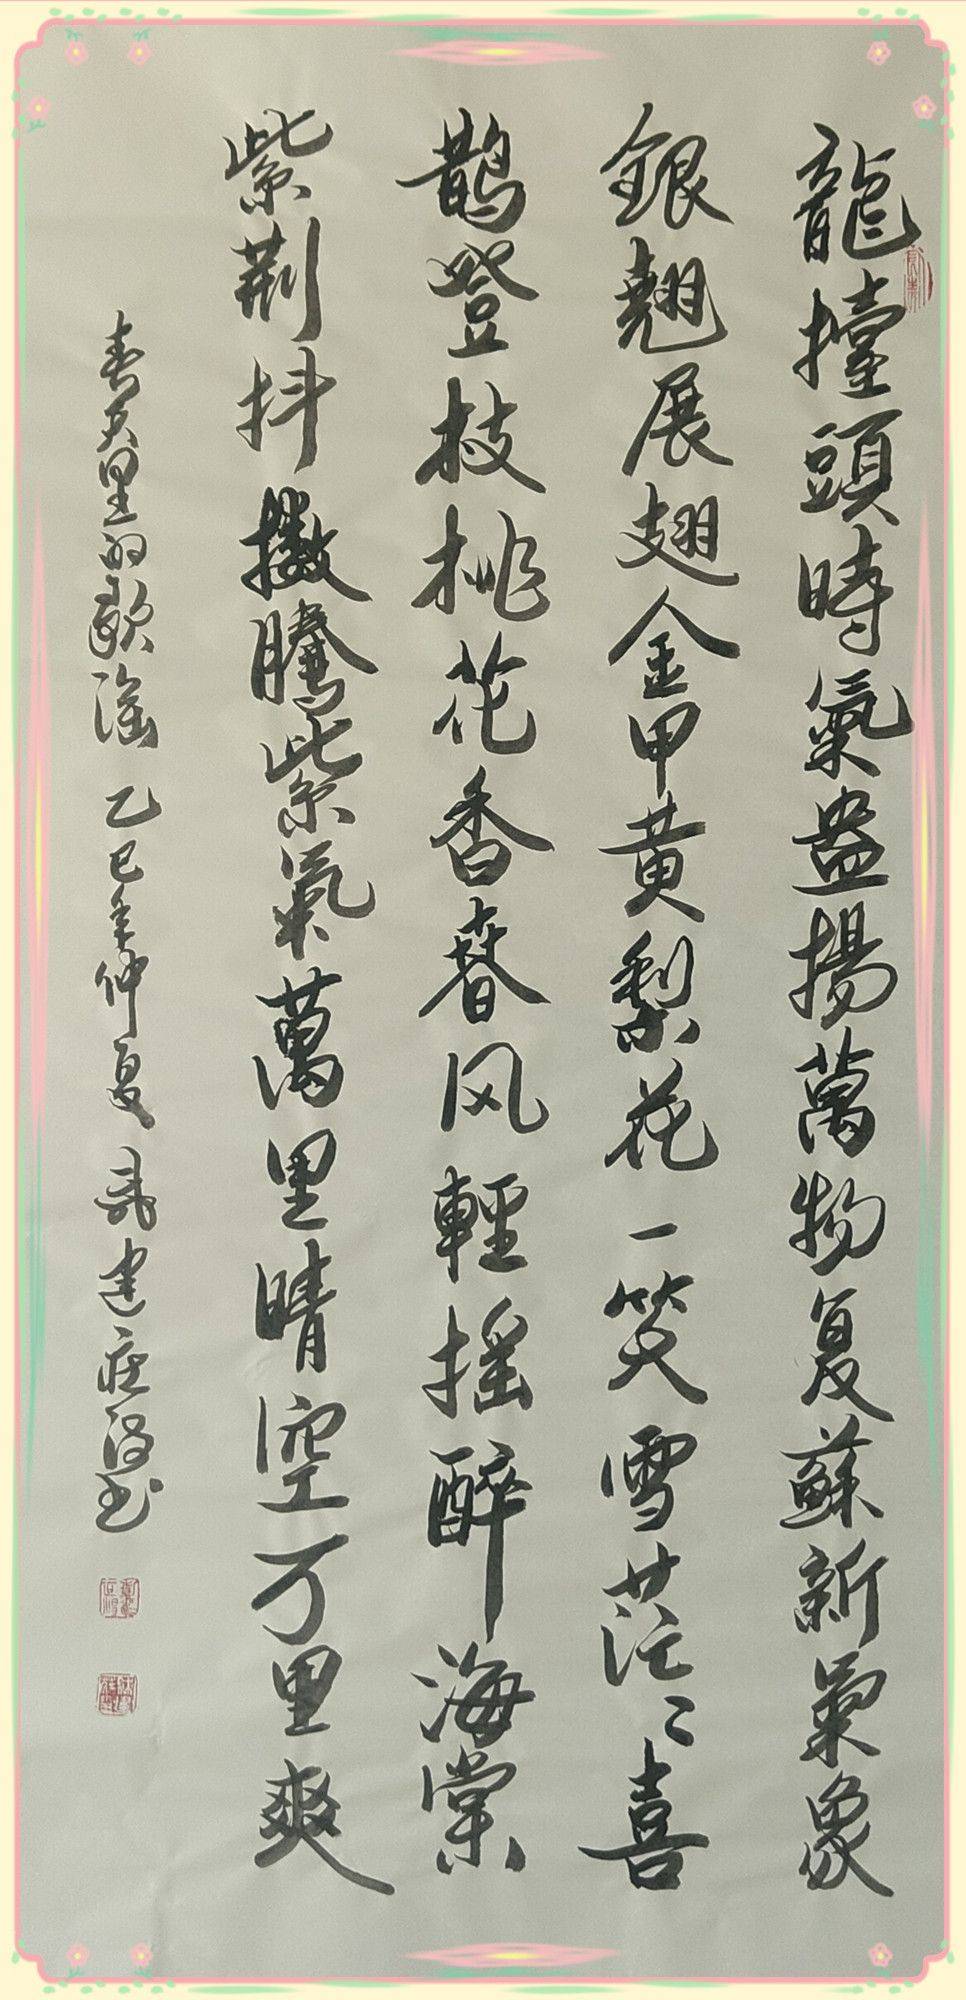 龍擡頭時氣盎揚萬物复蘇新氣象
銀翹展翅金甲黄梨花一笑雪茫〻喜
鹊登枝桃花香春风輕摇醉海棠
紫荆抖擻騰紫氣萬里晴空万里爽
春天里的歌谣 乙巳年仲夏 建庄书